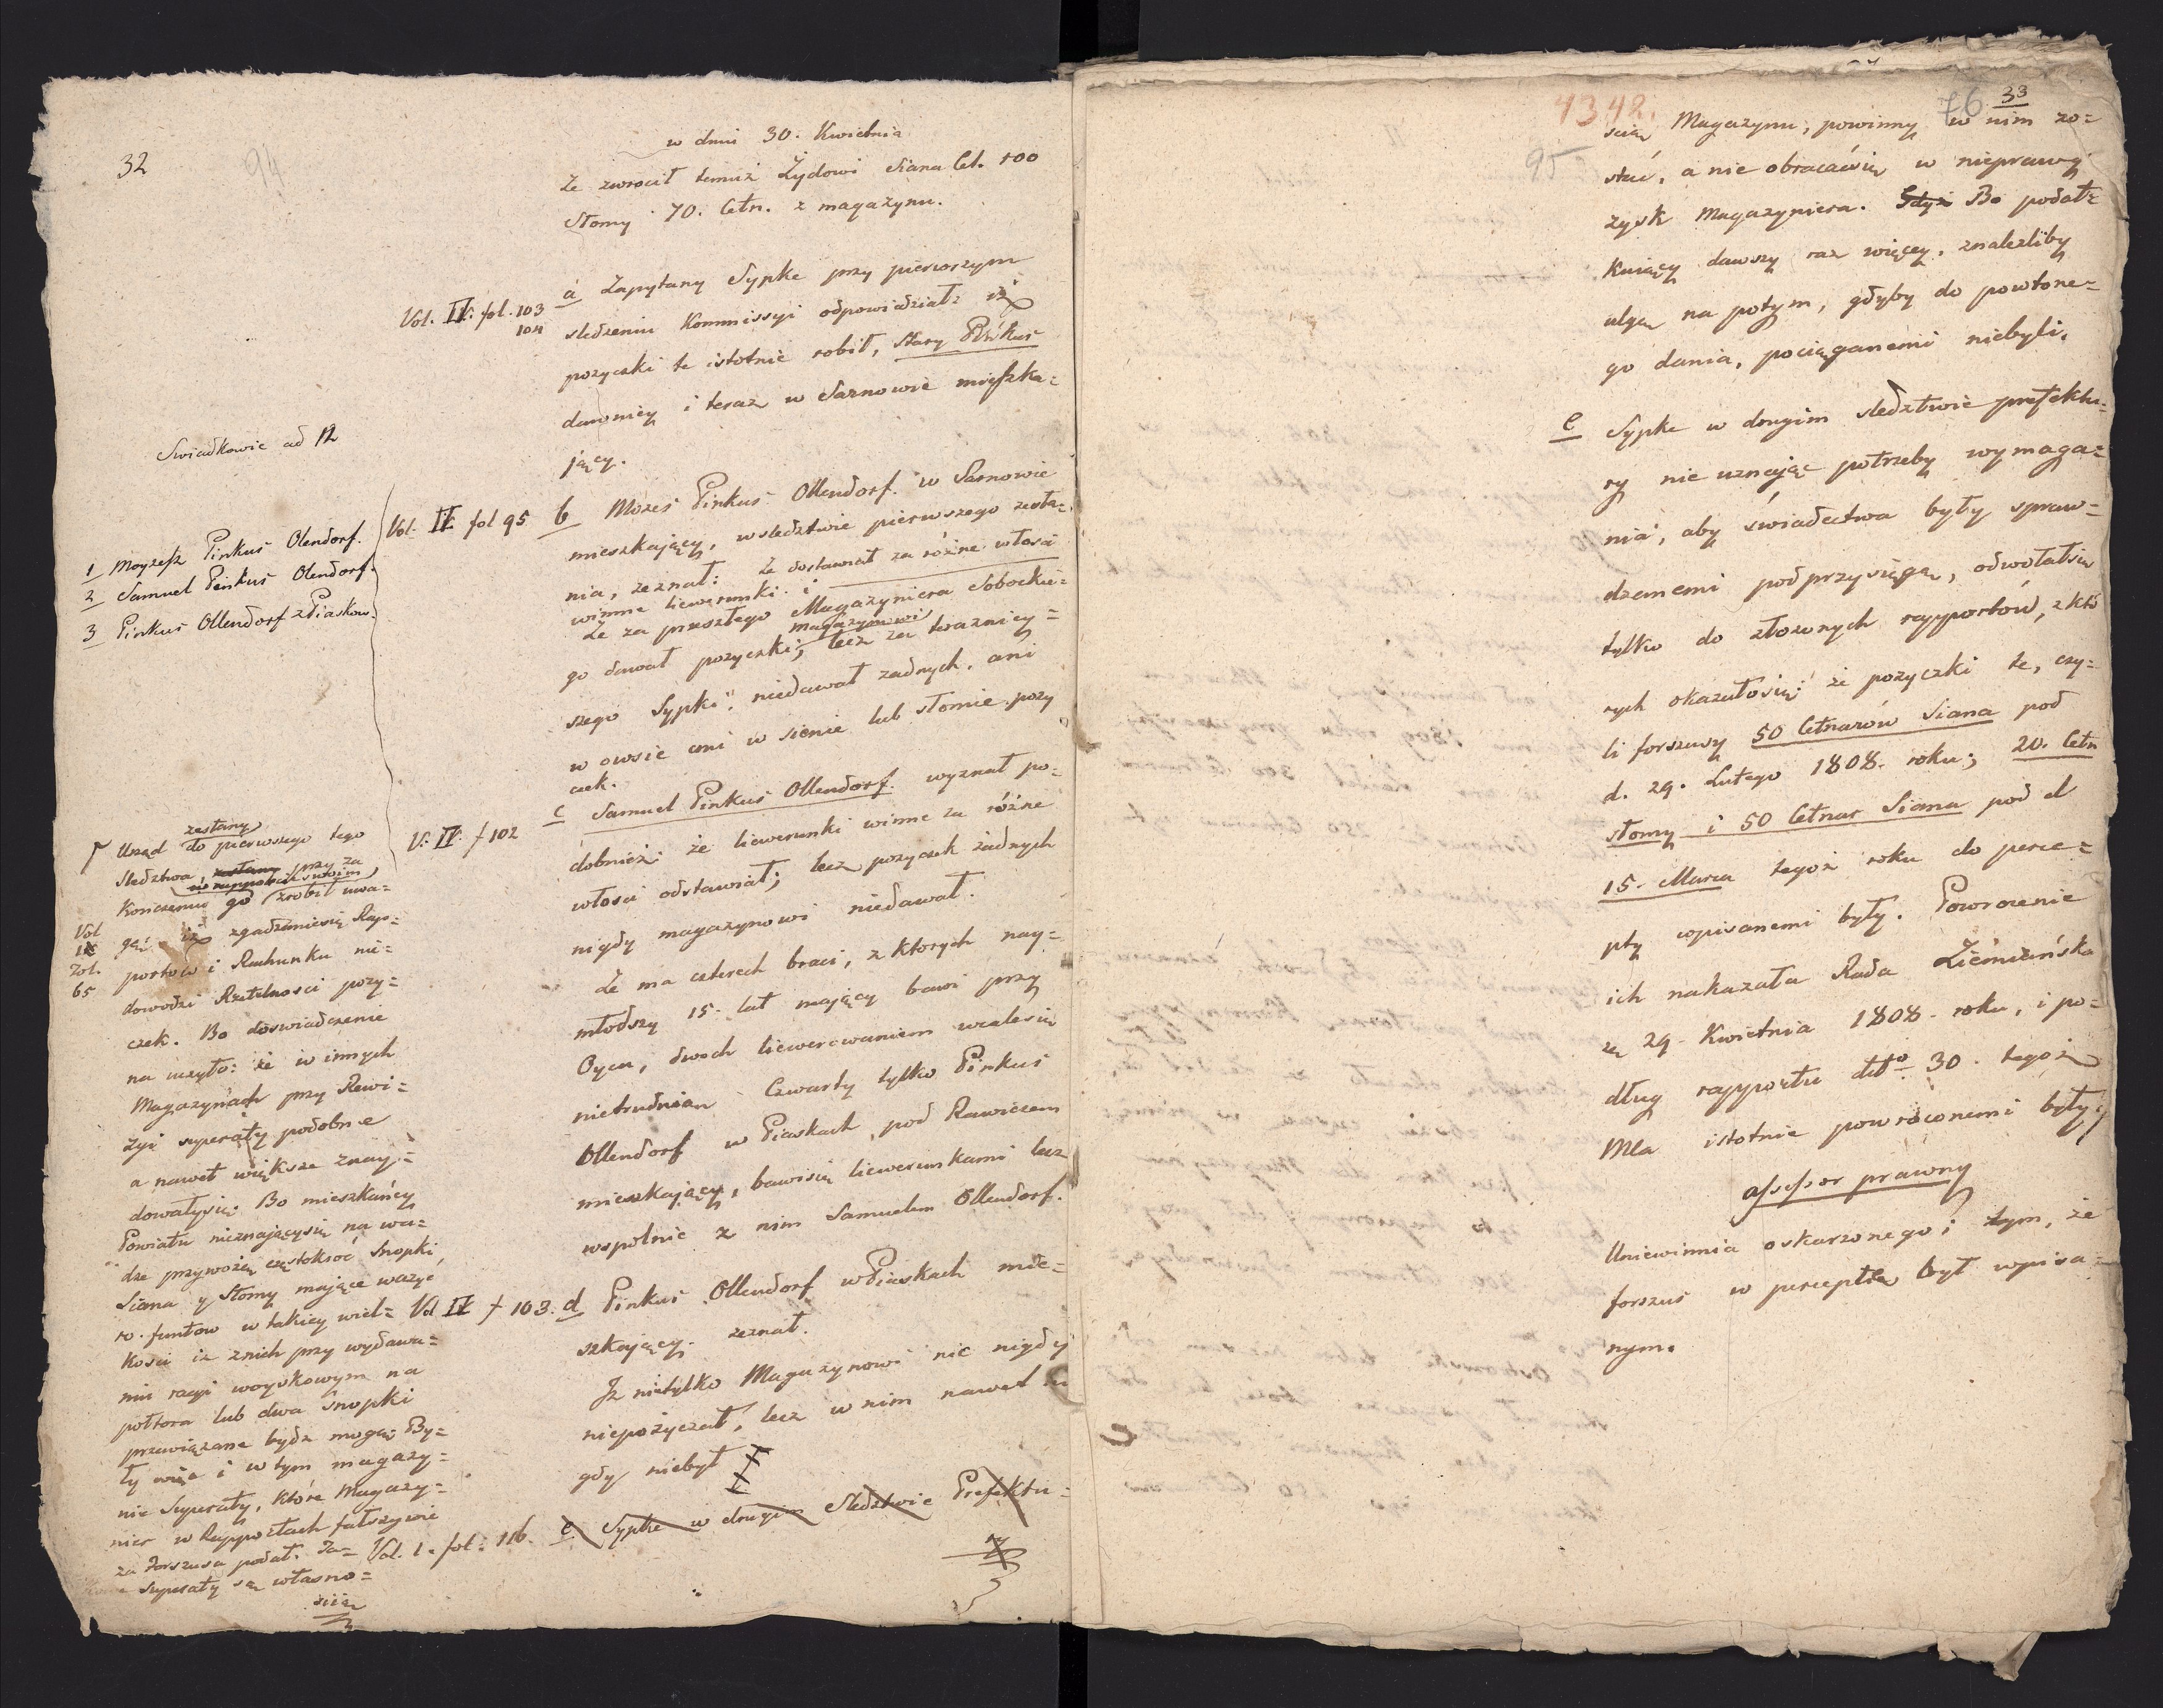 32
94
w dniu 30. Kwietnia
że zwrocił temuż Żydowi Siana Cet. 100
Słomy 70. Cetn. z magazynu.
Vol. IV. fol. 103
104
a Zapytany Sypke przy pierwszym
śledzeniu Kommissyi odpowiedział: iż
pozyczki te istotnie robił, Stary Pinkus
dawniey i teraz w Sarnowie mięszka=
jący.
Swiadkowie ad 12
1 Moyzesz Pinkus Olendorf.
2 Samuel Pinkus Olendorf.
3 Pinkus Ollendorf z Piaskow.
Vol. IV fol 95
b Mozes Pinkus Ollendorf w Sarnowie
mieszkający, w sledztwie pierwszego zesła=
nia, zeznał: że dostawiał za różne włosci
winne liewerunki i
że za przeszłego Magazyniera Sobockie=
go dawał pozyczki magazynowi; lecz za terazniey=
szego Sypki, niedawał zadnych, ani
w owsie ani w sienie lub słomie pozy
czek.
V: IV: f 102
c Samuel Pinkus Ollendorf. wyznał po=
dobnież: że liewerunki winne za różne
włosci odstawiał; lecz pozyczek żadnych
nigdy magazynowi niedawał.
Że ma czterech braci, z ktorych nay=
młodszy 15. lat mający bawi przy
Oycu, dwoch liewerowaniem wcalesię
nietrudnian Czwarty tylko Pinkus
Ollendorf w Piaskach, pod Rawiczem
mieszkający, bawisię liewerunkami lecz
wspolnie z nim Samuelem Ollendorf.
Vol IV f 103.
d Pinkus Ollendorf w Piaskach mie=
szkający. zeznał.
Iż nietylko Magazynowi nic nigdy
niepożyczał, lecz w nim nawet ni
gdy niebył
Vol. 1. fol: 116.
e Sypke w drugim Sledztwie Prefektu=
ry
Urząd zesłany do pierwszego tego
Sledztwa, zesłany przy za
kończeniu go zrobił uwa=
Vol
IV
Fol.
65
gę: iż zgadzaniesię Rap=
portow i Rachunku nie=
dowodzi Rzetelnosci pozy=
czek. Bo doswiadczenie
na uczyło: że w innych
Magazynach przy Rewi=
zyi superaty podobne
a nawet większe znay=
dowałysię: Bo mieszkańcy
Powiatu nieznającysię na wa=
dze przywożą częstokroć Snopki
Siana y Słomy mające ważyć
10. funtow w takiey wiel=
kosci iz znich przy wydawa=
niu racyi woyskowym na
połtora lub dwa Snopki
przewiązane bydz mogą: By=
ły więc i w tym magazy=
nie Superaty, które Magazy=
nier w Rapportach fałszywie
za Forszusa podał. Ta=
Superaty są własno=
ścią
4342.
76
33
95
scią Magazynu, powinny w nim zo=
stać, a nie obracaćsię w nieprawy
zysk Magazyniera. Gdyż Bo podat=
kuiący dawszy raz więcey, znalezliby
ulgę na potym, gdyby do powtorne=
go dania, pociąganemi niebyli.
e Sypke w drugim sledztwie prefektu=
ry nie uznając potrzeby wymaga=
nia, aby świadectwa były spraw=
dzenemi pod przysięgą, odwołałsię
tylko do złożonych rapportów, z któ
rych okazałosię: że pozyczki te, czy=
li forszusy 50 Cetnarów Siana pod
d. 29. Lutego 1808. roku; 20. Cetn
słomy i 50 Cetnar Siana pod d
15. Marca tegoż roku do perce=
pty wpisanemi były. Powrocenie
ich nakazała Rada Ziemiańska
29. Kwietnia 1808. roku, i po=
dług rapportu dtto 30. tegoż
Mca istotnie powróconemi były
assessor prawny
Uniewinnia oskarzonego; tym, że
forszus w perceptę był wpisa=
nym.